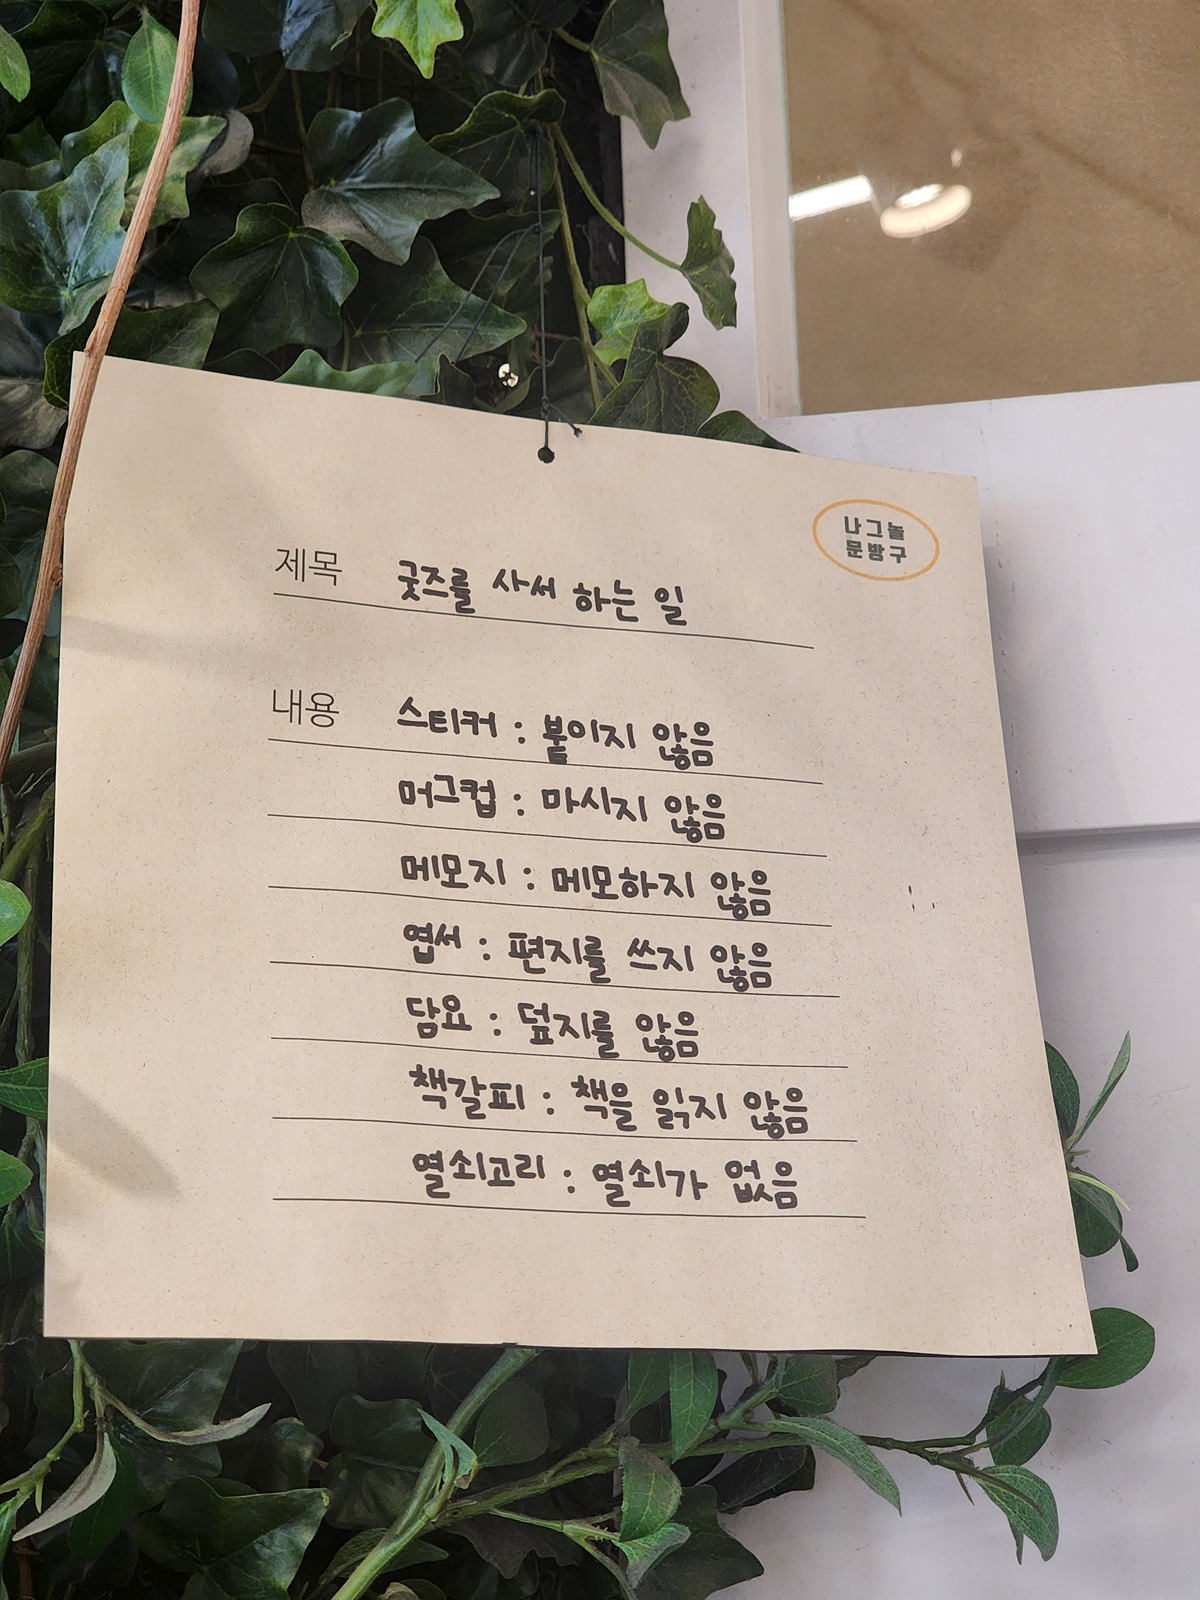 나그놀
문방구
제목 굿즈를 사서 하는 일
내용 스티커 : 붙이지 않음
머그컵 : 마시지 않음
메모지 : 메모하지 않음
엽서 : 편지를 쓰지 않음
담요 : 덮지를 않음
책갈피 : 책을 읽지 않음
열쇠고리 : 열쇠가 없음